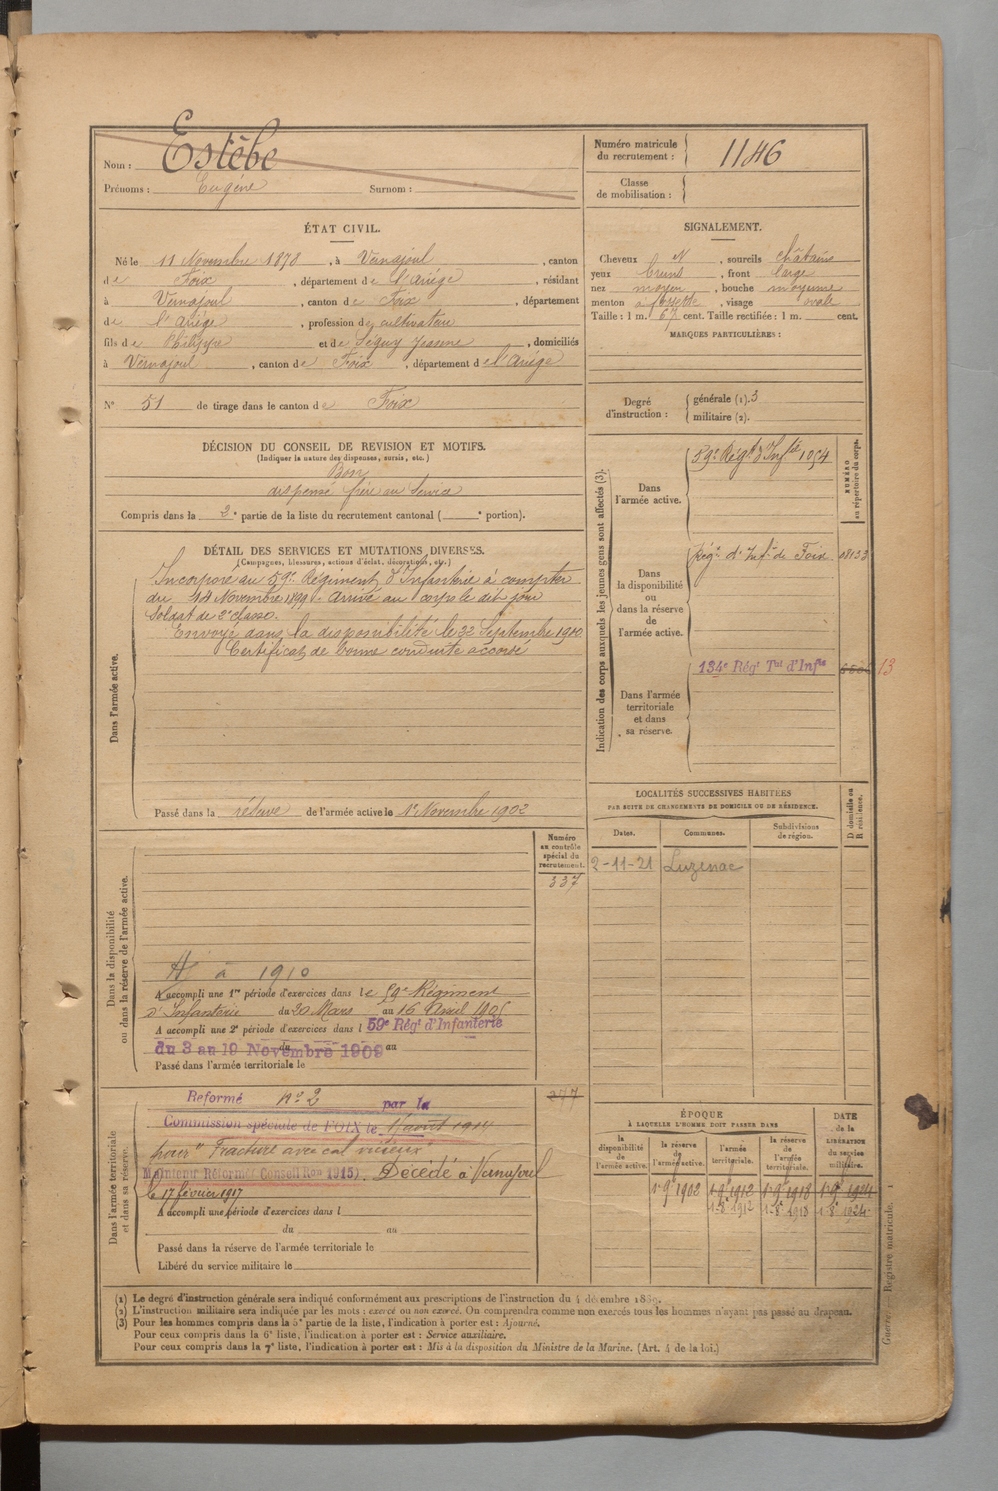 Nom : Estèbe
Prénoms : Eugène Surnom :
Numéro matricule
du recrutement : 1146
Classe
de mobilisation :
ÉTAT CIVIL.
Né le 11 Novembre 1878, à Vernajoul, canton
de Foix, département de l'Ariège, résidant
à Vernajoul, canton de Foix, département
de l'Ariège, profession de cultivateur
fils de Philippe et de Séguy Jeanne, domiciliés
à Vernajoul, canton de Foix, département de l'Ariège
No 51 de tirage dans le canton de Foix
SIGNALEMENT.
Cheveux N, sourcils châtains
yeux bruns, front large
nez moyen, bouche moyenne
menton à fossette, visage ovale
Taille : 1 m. 67 cent. Taille rectifiée : 1 m. cent.
MARQUES PARTICULIÈRES :
Degré
d'instruction :
générale (1). 3
militaire (2).
DÉCISION DU CONSEIL DE REVISION ET MOTIFS.
(Indiquer la nature des dispenses, sursis, etc.)
Bon
dispensé frère au service
Compris dans la 2e partie de la liste du recrutement cantonal ( e portion).
DÉTAIL DES SERVICES ET MUTATIONS DIVERSES.
(Campagnes, blessures, actions d'éclat, décorations, etc.)
Dans l'armée active.
Incorporé au 59e Régiment d'Infanterie à compter
du 14 Novembre 1899. Arrivé au corps le dit jour
Soldat de 2e classe.
Envoyé dans la disponibilité le 22 Septembre 1900.
Certificat de bonne conduite accordé
Passé dans la réserve de l'armée active le 1er Novembre 1902
Indication des corps auxquels les jeunes gens sont affectés (3).
NUMÉRO
au répertoire du corps.
Dans
l'armée active.
59e Régt d'Infie 1054
Dans
la disponibilité
ou
dans la réserve
de
l'armée active.
Régt d'Infie de Foix 08133
Dans l'armée
territoriale
et dans
sa réserve.
134e Régt Tal d'Infie 13
LOCALITÉS SUCCESSIVES HABITÉES
PAR SUITE DE CHANGEMENTS DE DOMICILE OU DE RÉSIDENCE.
D domicile ou
R résidence.
Dates. Communes. Subdivisions
de région.
2-11-21 Luzenac
Dans la disponibilité
ou dans la réserve de l'armée active.
Numéro
au contrôle
spécial du
recrutement.
337
à 1910
A accompli une 1re période d'exercices dans le 59e Régiment
d'Infanterie du 20 Mars au 16 Avril 1905
A accompli une 2e période d'exercices dans l 59e Régt d'Infanterie
du 3 au 19 Novembre 1909 au
Passé dans l'armée territoriale le
Dans l'armée territoriale
et dans sa réserve.
Reformé no 2 par la
Commission spéciale de FOIX le 1 août 1914
pour "Fracture avec cal vicieux
Maintenu Réformé (Conseil Ron 1915). Décédé à Vernajoul
le 17 février 1917
A accompli une période d'exercices dans l
du au
Passé dans la réserve de l'armée territoriale le
Libéré du service militaire le
ÉPOQUE
À LAQUELLE L'HOMME DOIT PASSER DANS
DATE
de la
LIBÉRATION
du service
militaire.
la
disponibilité
de
l'armée active.
la réserve
de
l'armée active.
l'armée
territoriale.
la réserve
de
l'armée
territoriale.
1er 9e 1902 1er 9e 1912 1er 9e 1918 1er 9e 1924
1-8e 1912 1-8e 1918 1-8e 1924
(1) Le degré d'instruction générale sera indiqué conformément aux prescriptions de l'instruction du 4 décembre 1889.
(2) L'instruction militaire sera indiquée par les mots : exercé ou non exercé. On comprendra comme non exercés tous les hommes n'ayant pas passé au drapeau.
(3) Pour les hommes compris dans la 5e partie de la liste, l'indication à porter est : Ajourné.
Pour ceux compris dans la 6e liste, l'indication à porter est : Service auxiliaire.
Pour ceux compris dans la 7e liste, l'indication à porter est : Mis à la disposition du Ministre de la Marine. (Art. 4 de la loi.)
Guerre. — Registre matricule. 1